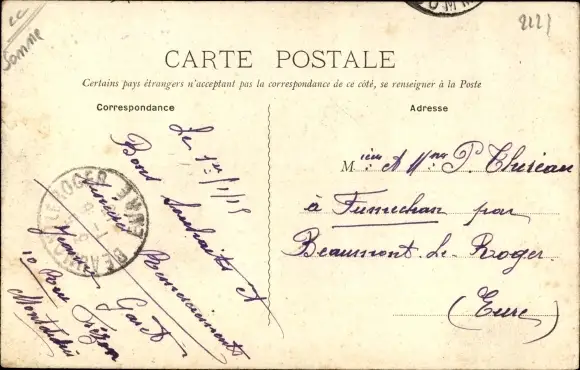 Somme
2221
CARTE POSTALE
Certains pays étrangers n'acceptent pas la correspondance de ce côté, se renseigner à la Poste
Correspondance
Adresse
Le 1er/1/15
Bons Souhaits et
Remerciements
Garet
10 Rue
Montdidier
BEAUMONT-LE-ROGER EURE
à Fumechon par
Beaumont-Le-Roger
(Eure)